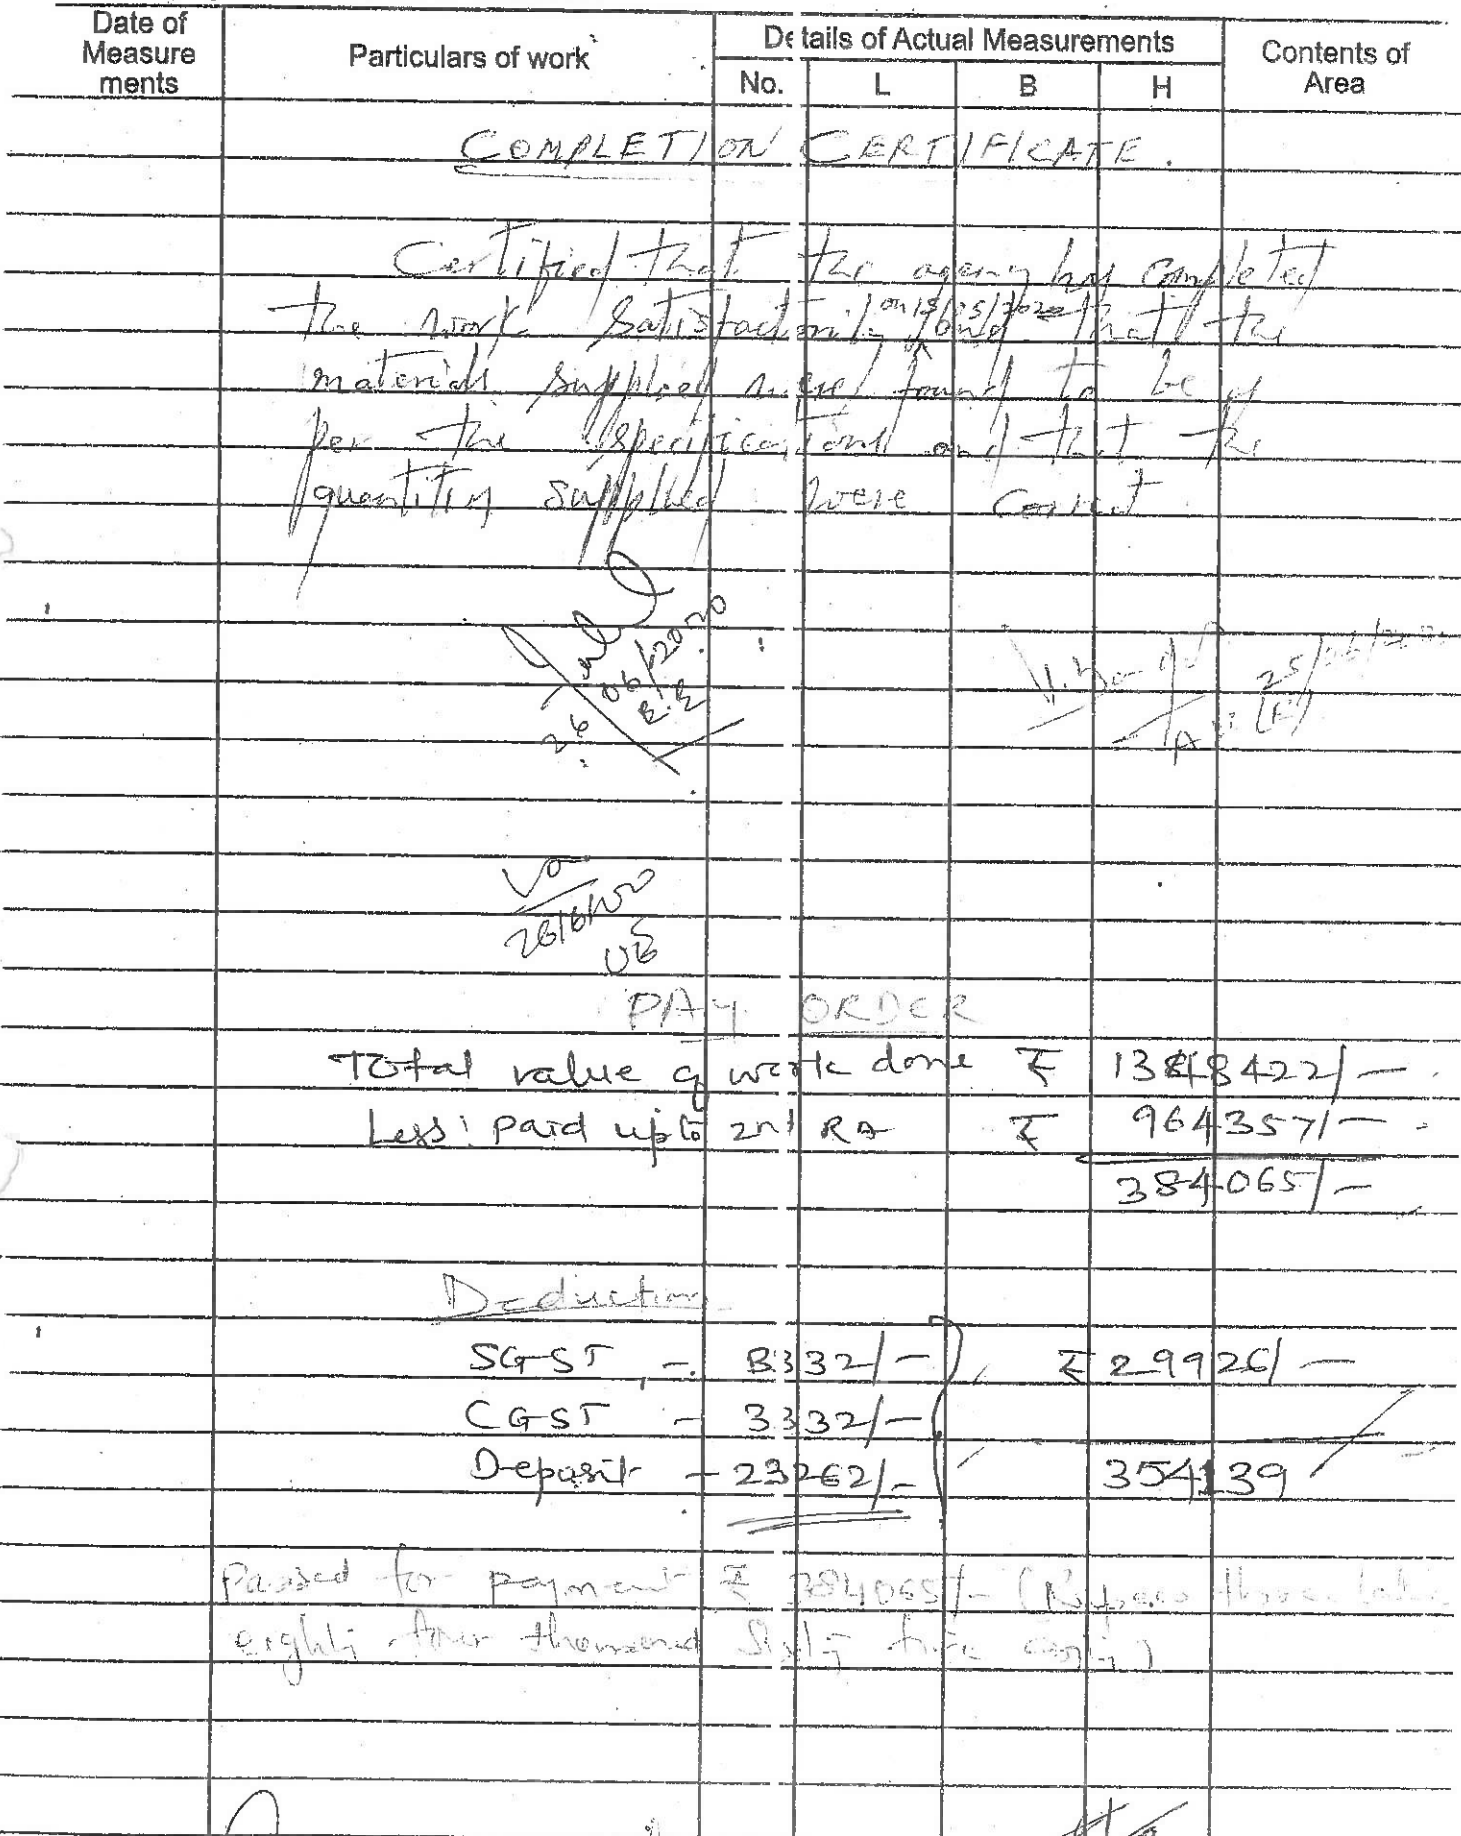 Date of Measure ments
Particulars of work
Details of Actual Measurements
No. L B H
Contents of Area
COMPLETION CERTIFICATE.
Certified that the agency has completed
the work satisfactorily on 15/05/2020 and that the
materials supplied were found to be as
per the specifications and that the
quantities supplied were correct
26/06/2020
E.E
25/06/2020
26/6/20
PAY ORDER
Total value of work done ₹ 1348422/-
Less: paid upto 2nd RA ₹ 964357/-
384065/-
Deduction
SGST - 3332/- ₹ 29926/-
CGST - 3332/-
Deposit - 23262/- 354139
Passed for payment ₹ 384065/- (Rupees three lakh
eighty four thousand sixty five only)